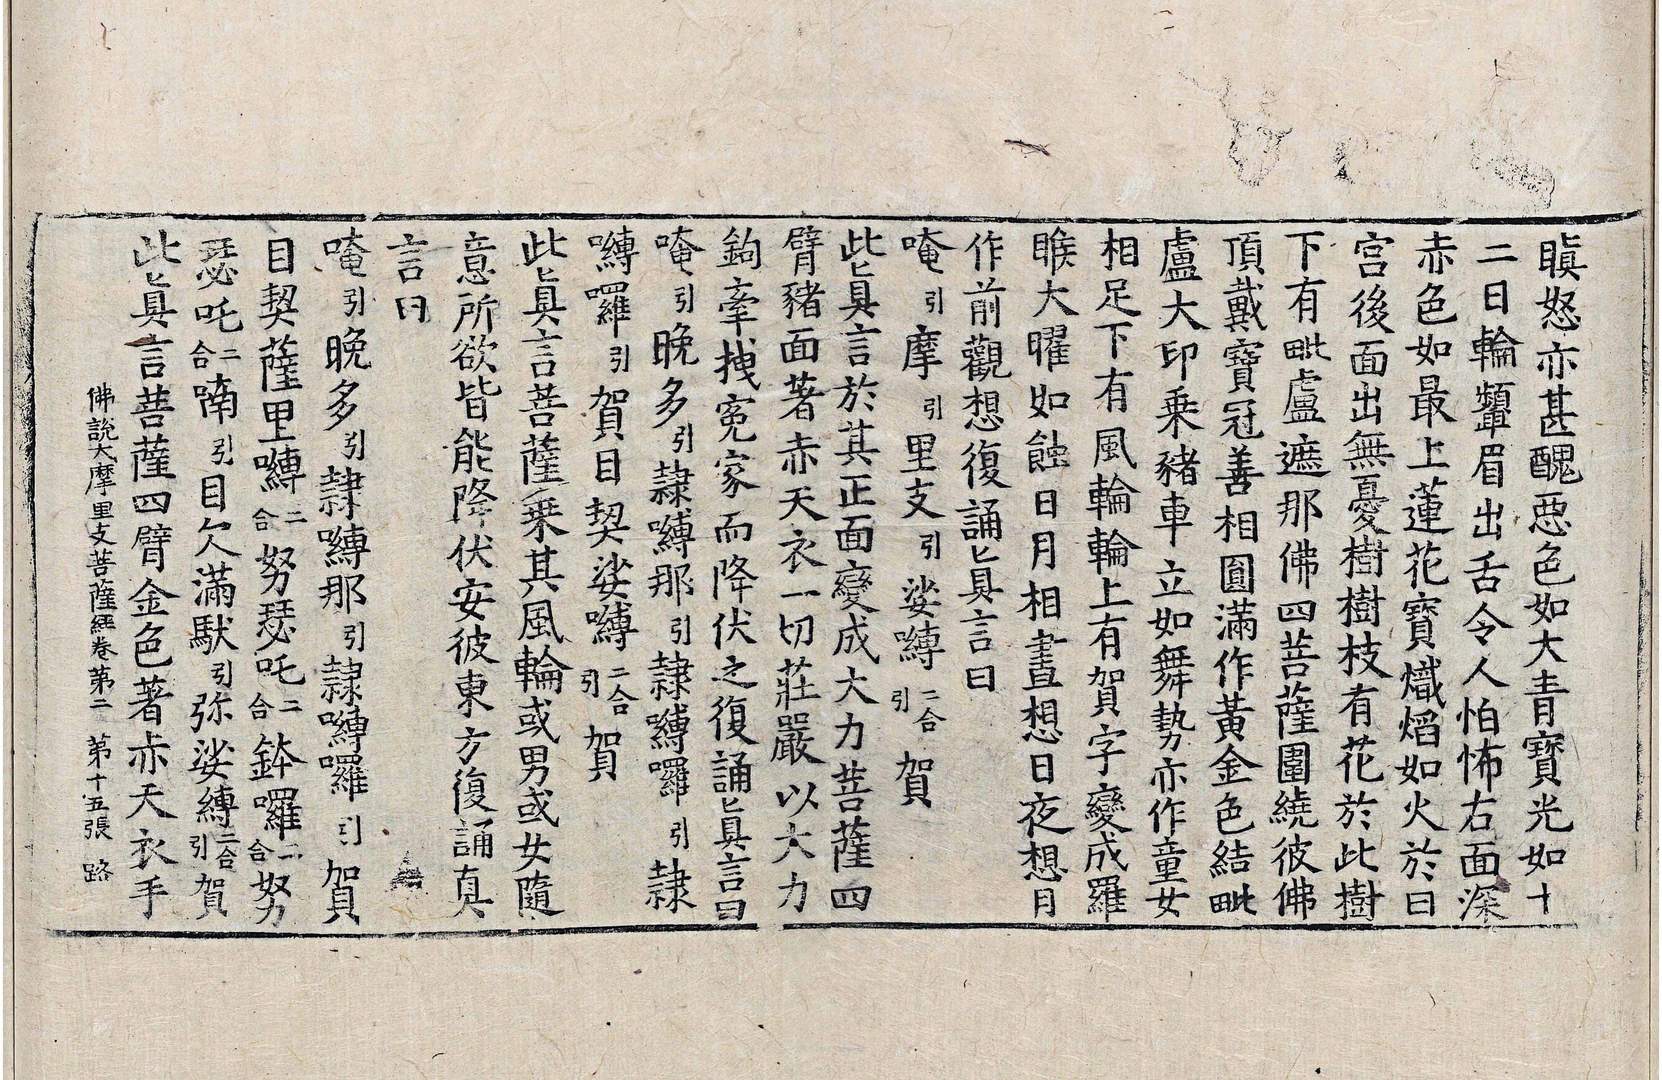 瞋怒亦甚醜惡色如大青寶光如十
二日輪顰眉出舌令人怕怖右面深
赤色如最上蓮花寶熾焰如火於日
宮後面出無憂樹樹枝有花於此樹
下有毗盧遮那佛四菩薩圍繞彼佛
頂戴寶冠善相圓滿作黃金色結毗
盧大印乗豬車立如舞勢亦作童女
相足下有風輪輪上有賀字變成羅
睺大曜如蝕日月相晝想日夜想月
作前觀想復誦真言曰
唵引摩引里支引娑嚩二合引賀
此真言於其正面變成大力菩薩四
臂豬面著赤天衣一切莊嚴以大力
鉤牽拽冤家而降伏之復誦真言曰
唵引晚多引隷嚩那引隷嚩囉引隷
嚩囉引賀目契娑嚩二合引賀
此真言菩薩乗其風輪或男或女隨
意所欲皆能降伏安彼東方復誦真
言曰
唵引晚多引隷嚩那引隷嚩囉引賀
目契薩里嚩二合努瑟吒二合鉢囉二合努
瑟吒二合喃引目欠滿馱引弥娑嚩二合引賀
此真言菩薩四臂金色著赤天衣手
佛說大摩里支菩薩經卷第二 第十五張 路